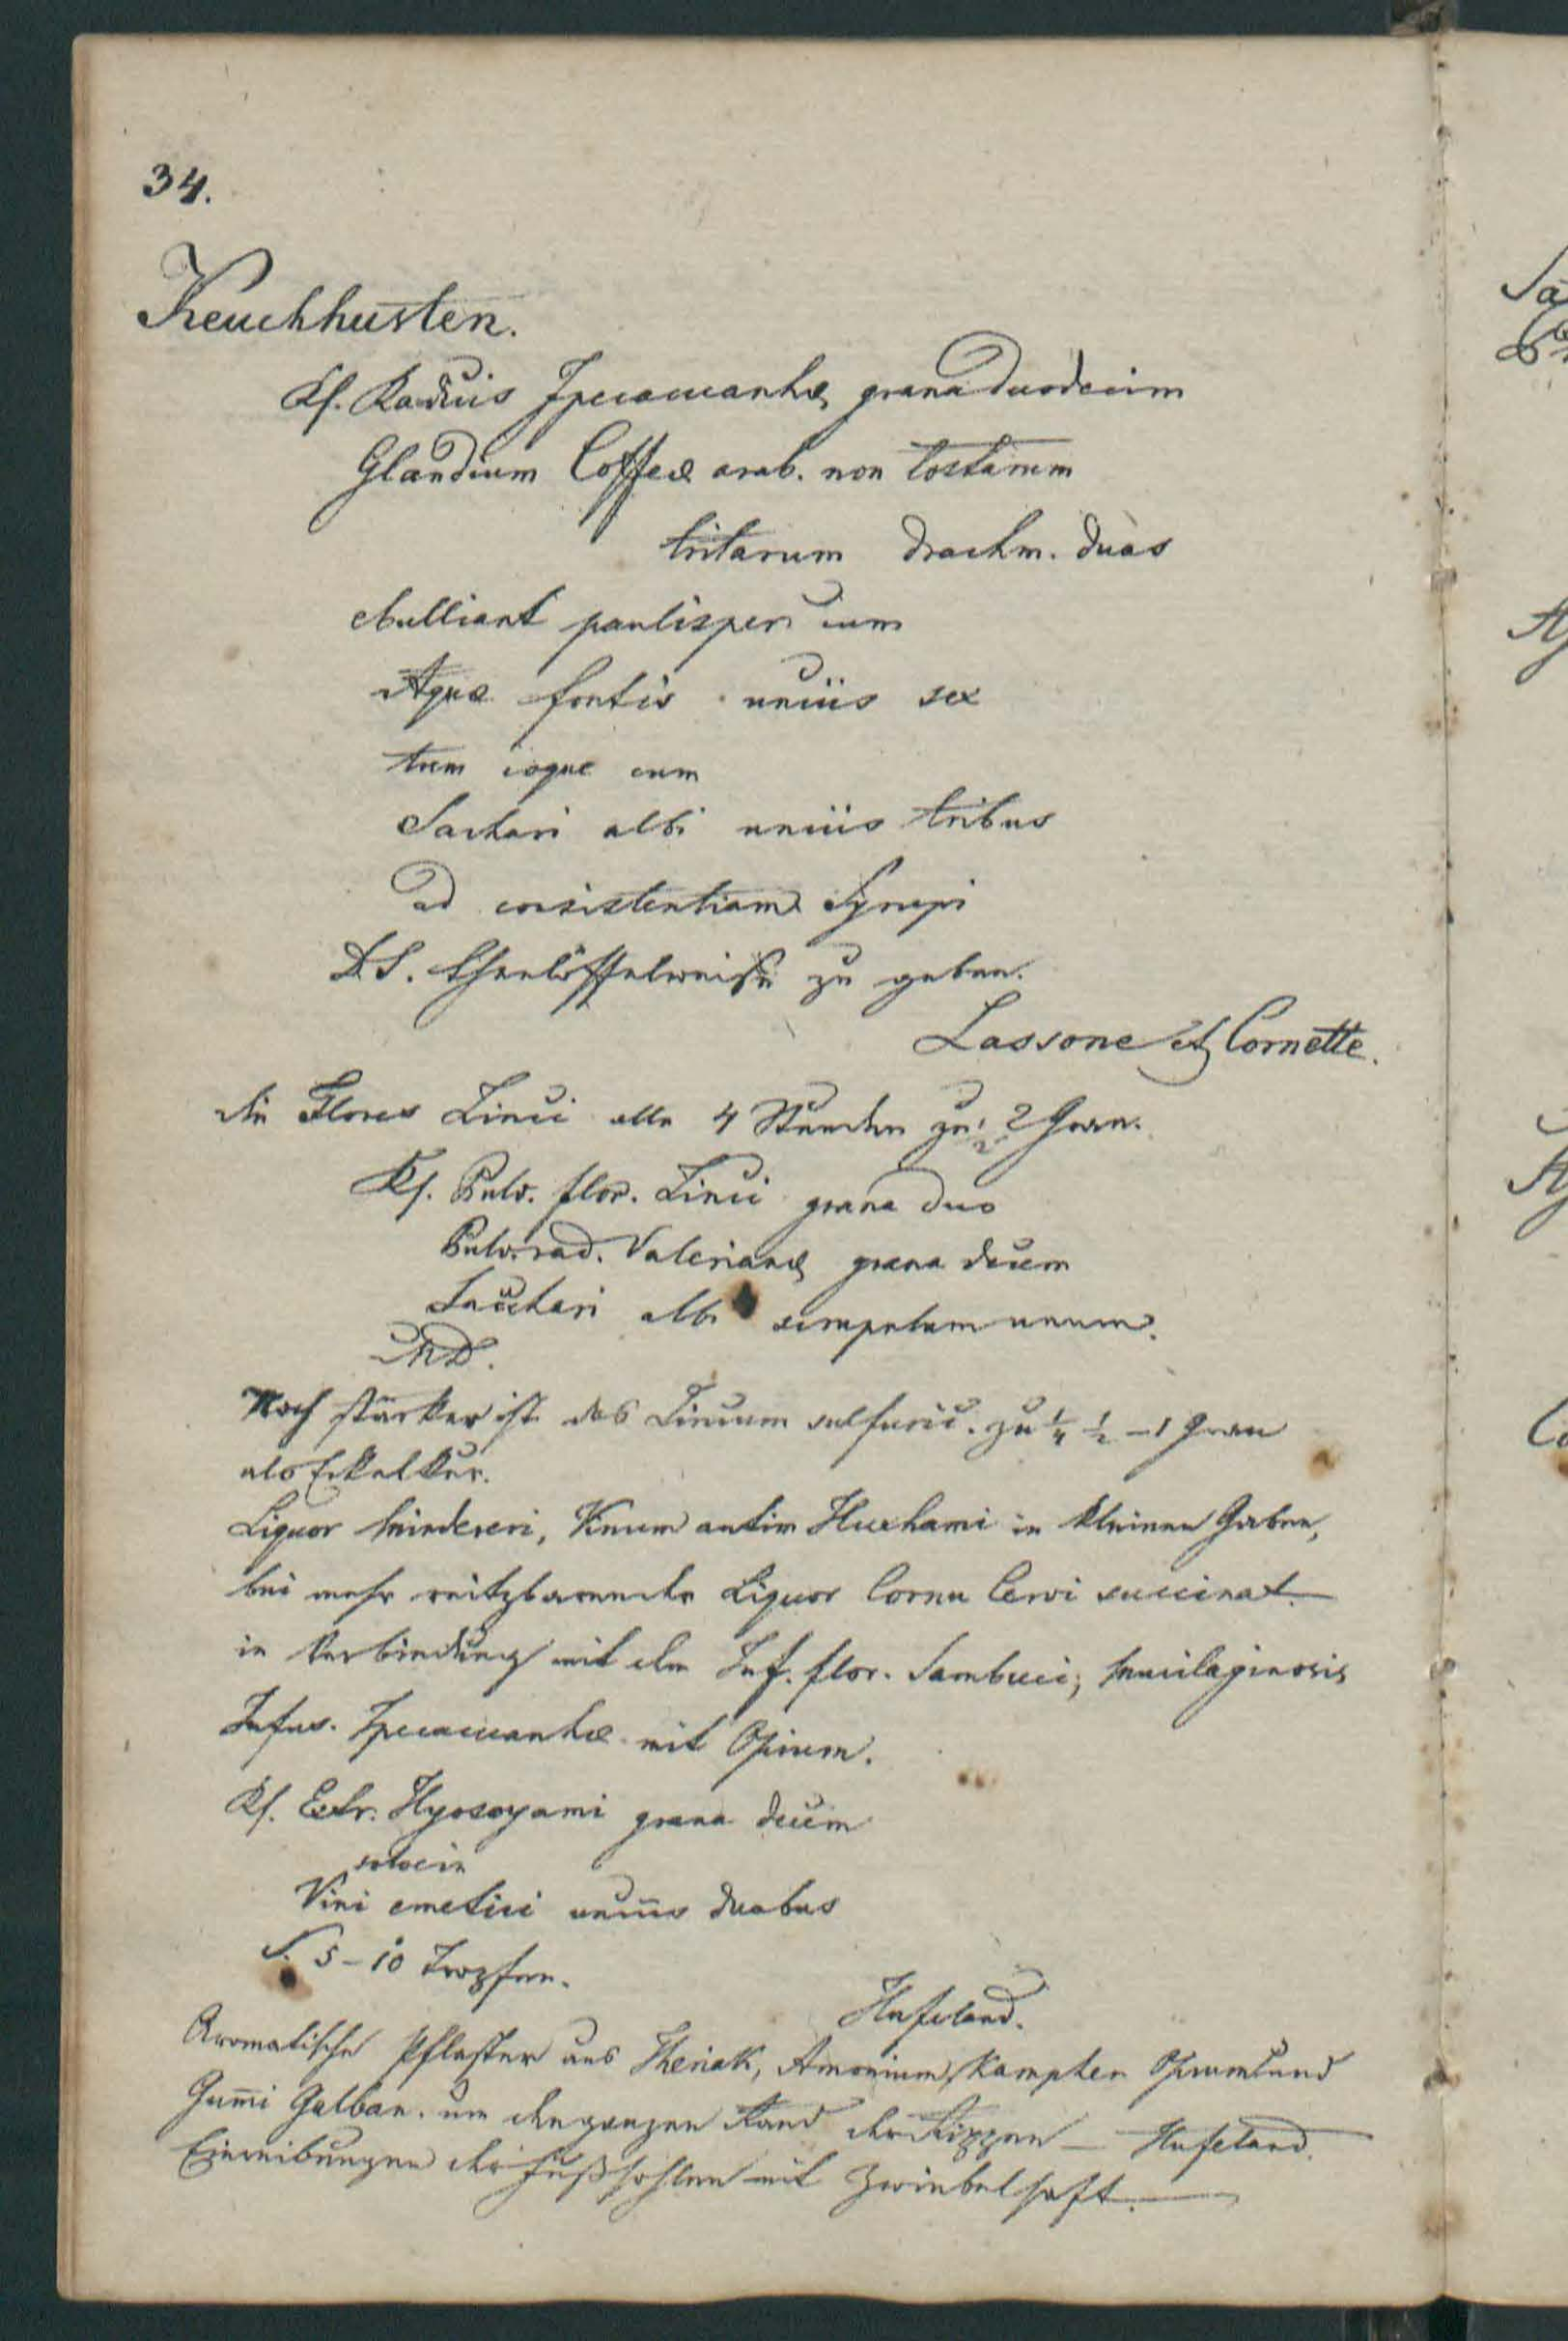 34.
Keuchhusten.
Rf. Radicis Ipecacuanhæ grana duodecim
Glandium Coffeæ arab. non tostarum
tritarum drachm. duas
ebulliant paulisper cum
Aquæ fontis unciis sex
tum coque cum
Sachari albi unciis tribus
ad consistentiam Syrupi
D.S. theelöffelweise zu geben.
Lassone et Cornette.
die Flores Zinci alle 4 Stunden zu ½ 2 Gran.
Rf. Pulv. flor. Zinci grana duo
Pulv. rad. Valerianæ grana decem
Sacchari albi scrupulum unum.
MD.
Noch stärker ist das Zincum sulfuric. zu ¼ ½ – 1 Gran
als Eckelkur.
Liquor Mindereri, Vinum antim Huxhami in kleinen Gaben,
bei mehr reitzbaren der Liquor Cornu Cervi succinat.
in Verbindung mit dem Inf. flor. Sambuci; mucilaginosis
Infus. Ipecacuanhæ mit Opium.
Rf. Extr. Hyoscyami grana decem
solve in
Vini emetici unciis duabus
S. 5–10 Tropfen.
Hufeland.
Aromatische Pflaster aus Theriak, Amonium, Kampher Opium und
Gum̅i Galban. um den ganzen Rand der Rippen — Hufeland.
Einreibungen der Fußsohlen mit Zwiebelsaft. —
Sa
Co